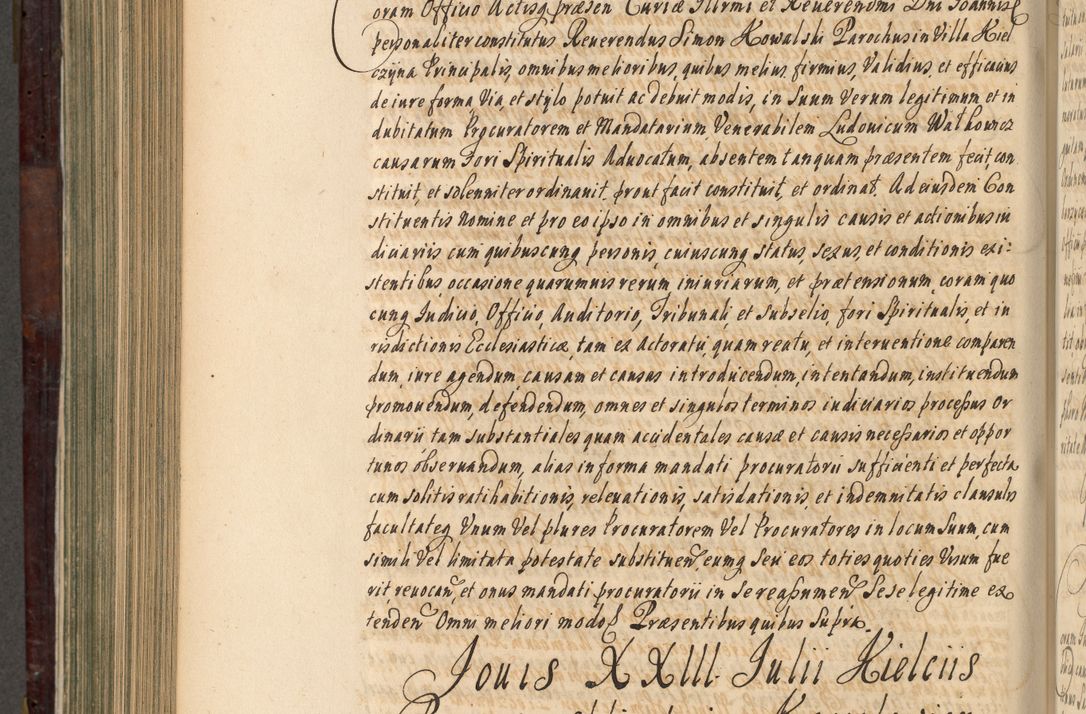 oram Officio Actisq præsen Curiæ Illrmi et Reuerendmi Dni Joannis
personaliter constitutus Reuerendus Simon Kowalski Parochus in Villa Kiel
czyna Principalis, omnibus melioribus, quibus melius, firmius, Validius, et efficacius
de iure forma Via, et stylo potuit ac debuit modis, in Suum Verum legitimum et in
dubitatum Procuratorem et Mandatarium Venerabilem Ludouicum Wałkowicz
causarum Fori Spiritualis Aduocatum, absentem tanquam præsentem fecit, con
stituit, et solenniter ordinauit prout facit constituit, et ordinat. Ad eiusdem Con
stituentis Nomine et pro eo ipso in omnibus et singulis causis et actionibus iu
diciariis cum quibuscunq personis, cuiuscunq status, sexus, et conditionis exi:
stentibus, occasione quarumuis rerum iniuriarum, et prætensionum, coram quo
cunq Judicio, Officio, Auditorio, Tribunali, et subselio, fori Spiritualis, et iu
risdictionis Ecclesiasticæ, tam ex Actoratu, quam reatu, et interuentione comparen
dum, iure agendum, causam et causas introducendum, intentandum, instituendum
promouendum, defendendum, omnes et singulos terminos iudiciarios processus or
dinarii tam substantiales quam accidentales causæ et causis necessarios et oppor
tunos obseruandum, alias in forma mandati procuratorii sufficienti et perfecta
cum solitis ratihabitionis, releuationis, satisdationis, et indemnitatis clausulis
facultateq Unum Vel plures Procuratorem Vel Procuratores in locum Suum, cum
simili Vel limitata potestate substituen, eumq Seu eos toties quoties Visum fue
rit reuocan, et onus mandati procuratorii in Se reassumen Sese legitime ex
tenden Omni meliori modo Præsentibus quibus Supra.
Jouis XXIII Julii Kielciis